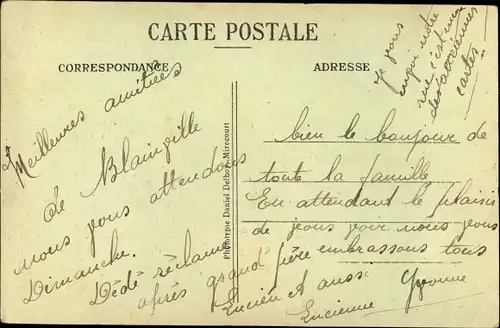 CARTE POSTALE
CORRESPONDANCE
ADRESSE
Meilleures amitiées
de Blainville
nous vous attendons
Dimanche.
Dédé réclame
après grand père
Lucien et
Lucienne
Phototypie Daniel Delboy-Mirecourt
bien le bonjour de
toute la famille
En attendant le plaisir
de vous voir nous vous
embrassons tous
Yvonne
Je vous
notre
rue c'est encore
des anciennes
cartes